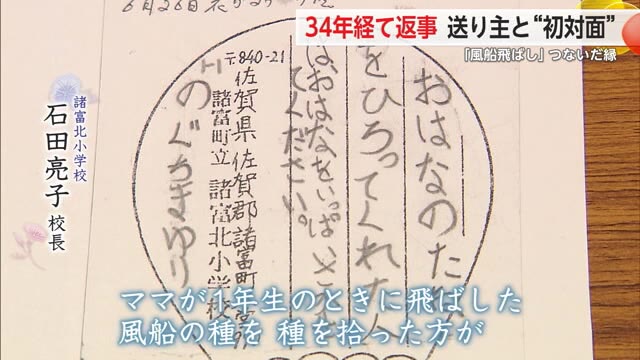 34年経て返事 送り主と“初対面”
「風船飛ばし」つないだ縁
6月26日
諸富北小学校
石田亮子 校長
おはなのたね
をひろってくれた人
はおはなをいっぱい
てください。
〒840-21
佐賀県 佐賀郡 諸富町
諸富町立 諸富北小学校
のぐちきゆり
ママが1年生のときに飛ばした
風船の種を 種を拾った方が